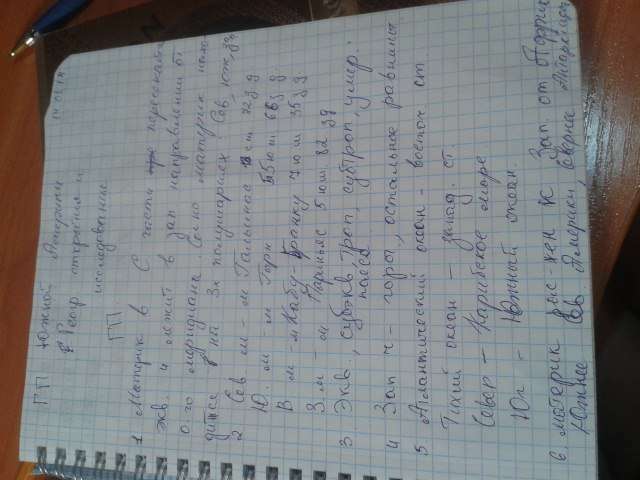 14.01.14
ГП Южной Америки
Геогр открытия и
исследование
ГП.
1 Материк в С части пересекает
экв. и лежит в зап направлении от
0-го меридиана. Весь материк нахо-
дится на 3х полушариях Сев, юж, зап
2 Сев м - м Гальинас 12 сш 72 зд
Ю. м - м Горн 55 юш 68 зд
В м - м Кабу-Бранку 7 юш 35 зд
З. м - м Париньяс 5 юш 82 зд
3 Экв, субэкв, троп, субтроп, умер.
пояса
4 Зап ч - горы, остальное равнины
5 Атлантический океан - восточ ст.
Тихий океан - запад. ст.
Север - Карибское море
Юг - Южный океан.
6. материк рас-жен к Зап. от Африки
Южнее Сев Америки, Севернее Антарктиды